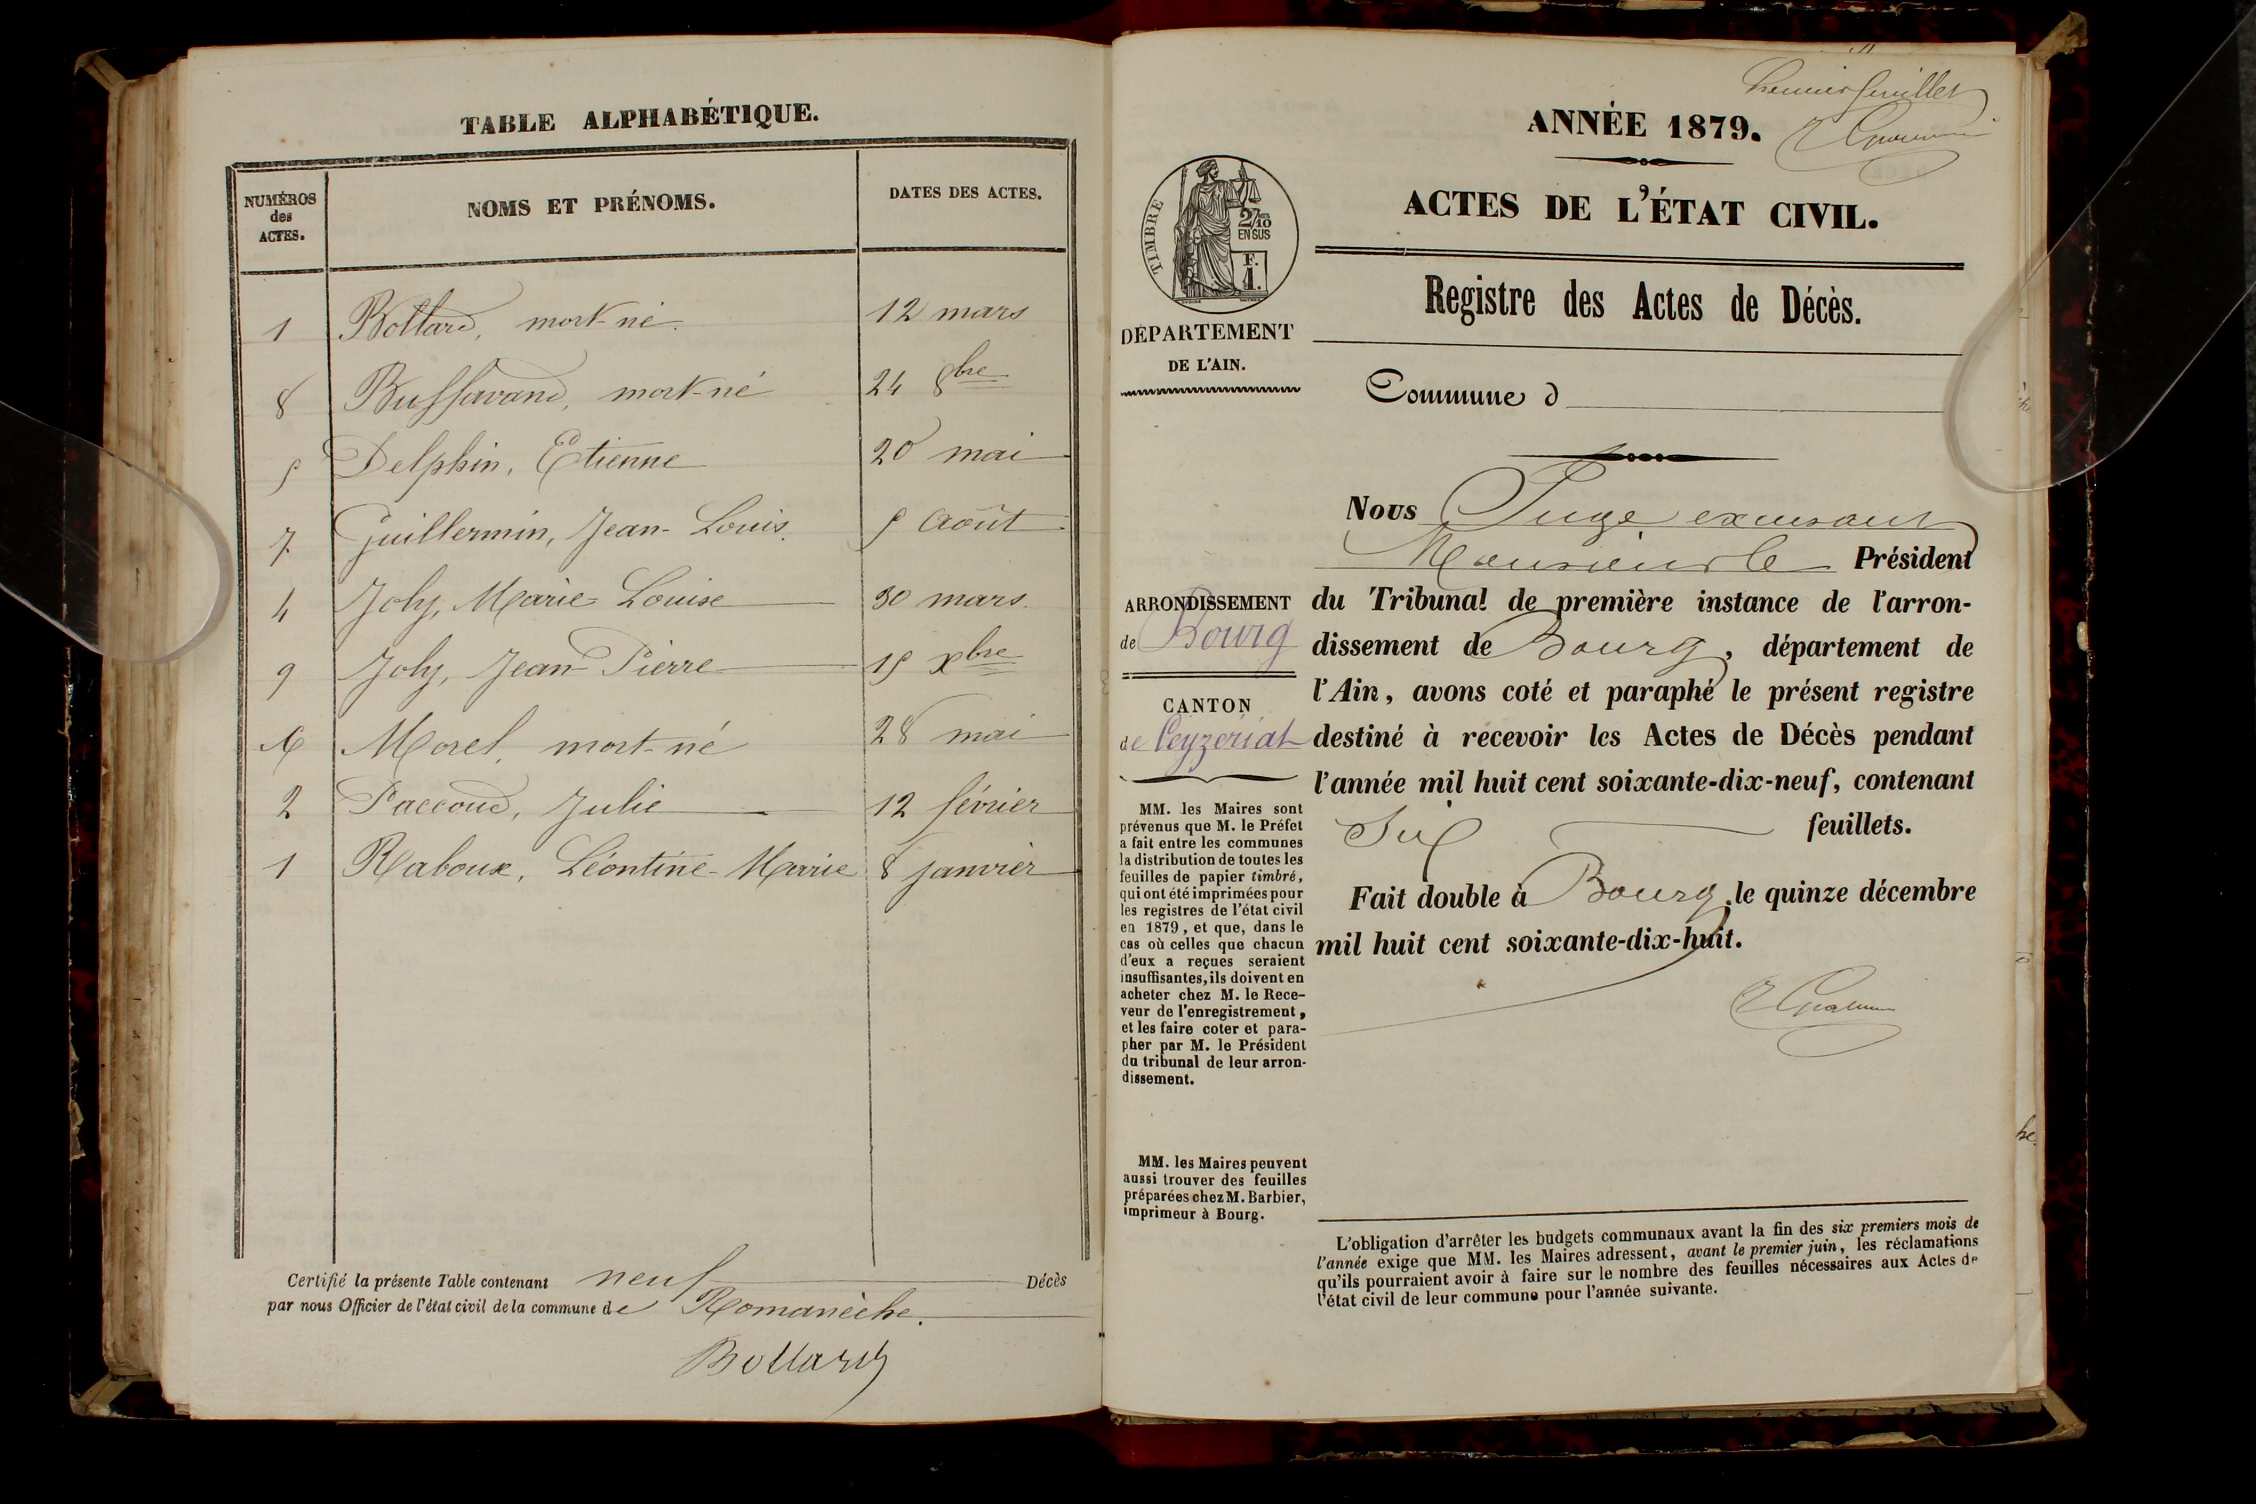 TABLE ALPHABÉTIQUE.
NUMÉROS
des
ACTES.
NOMS ET PRÉNOMS.
DATES DES ACTES.
1 Bollard, mort-né. 12 mars
8 Buffavand, mort-né 24 8bre
5 Delphin, Etienne 20 mai
7 Guillermin, Jean-Louis. 5 Août
4 Joly, Marie-Louise 30 mars.
9 Joly, Jean-Pierre 15 xbre
6 Morel, mort-né 28 mai
2 Paccoud, Julie 12 février
1 Raboux, Léontine-Marie 8 janvier
Certifié la présente Table contenant neuf Décès
par nous Officier de l'état civil de la commune de Romanèche.
Bollard
Premier feuillet
ANNÉE 1879.
ACTES DE L'ÉTAT CIVIL.
TIMBRE
2/10
EN SUS
F.
1.
Registre des Actes de Décès.
DÉPARTEMENT
DE L'AIN.
Commune d
Nous Juge excusant
Monsieur le Président
du Tribunal de première instance de l'arron-
dissement de Bourg, département de
l'Ain, avons coté et paraphé le présent registre
destiné à recevoir les Actes de Décès pendant
l'année mil huit cent soixante-dix-neuf, contenant
Six feuillets.
Fait double à Bourg, le quinze décembre
mil huit cent soixante-dix-huit.
ARRONDISSEMENT
de Bourg
CANTON
de Ceyzériat
MM. les Maires sont
prévenus que M. le Préfet
a fait entre les communes
la distribution de toutes les
feuilles de papier timbré,
qui ont été imprimées pour
les registres de l'état civil
en 1879, et que, dans le
cas où celles que chacun
d'eux a reçues seraient
insuffisantes, ils doivent en
acheter chez M. le Rece-
veur de l'enregistrement,
et les faire coter et para-
pher par M. le Président
du tribunal de leur arron-
dissement.
MM. les Maires peuvent
aussi trouver des feuilles
préparées chez M. Barbier,
imprimeur à Bourg.
L'obligation d'arrêter les budgets communaux avant la fin des six premiers mois de
l'année exige que MM. les Maires adressent, avant le premier juin, les réclamations
qu'ils pourraient avoir à faire sur le nombre des feuilles nécessaires aux Actes de
l'état civil de leur commune pour l'année suivante.